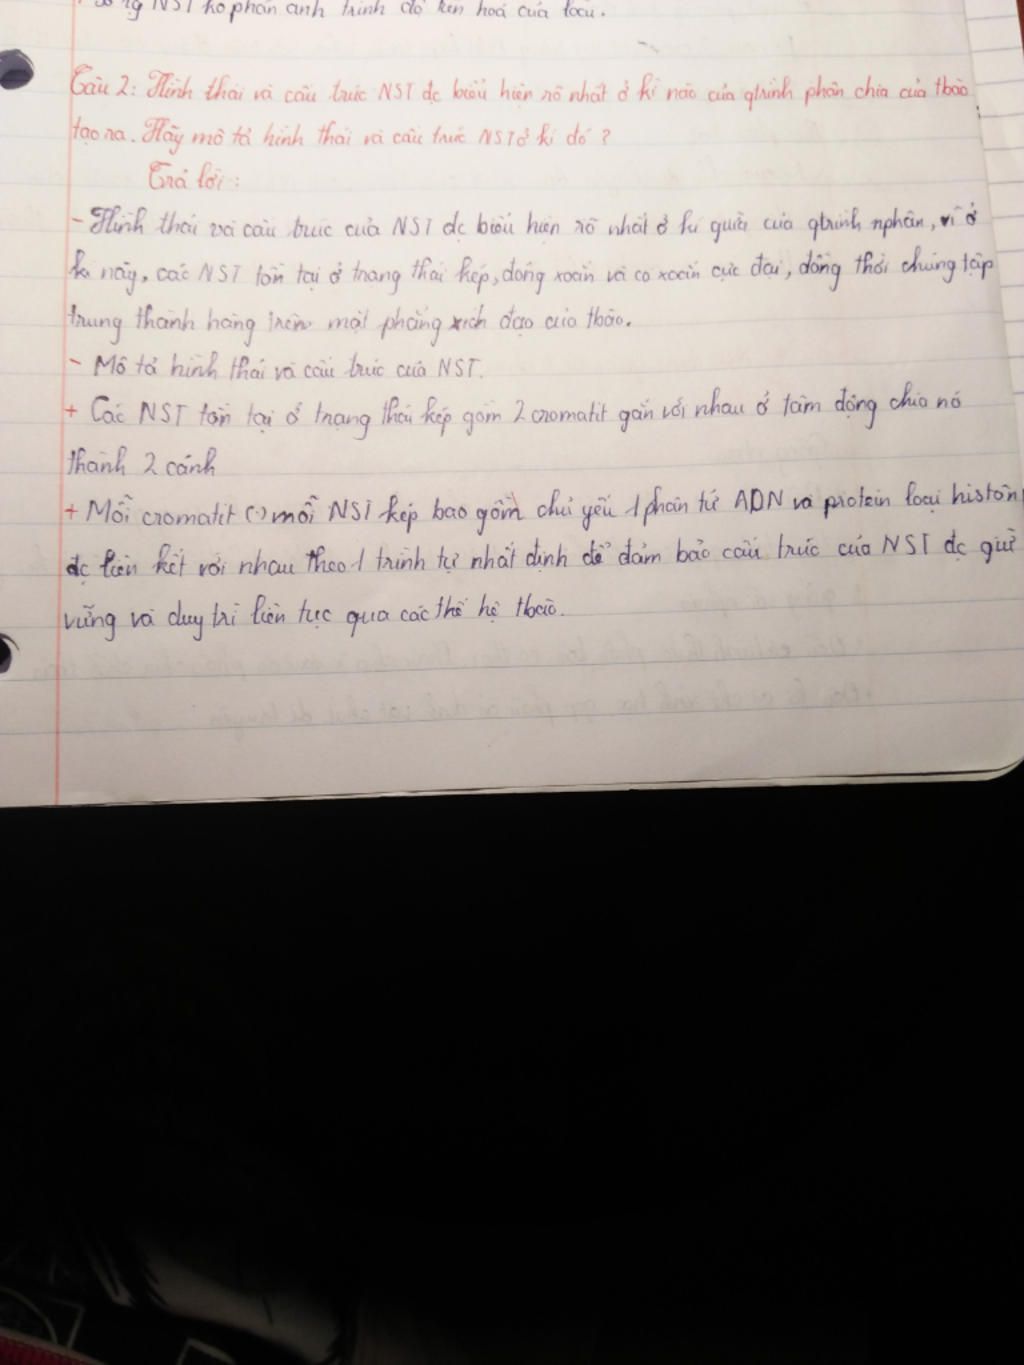 NST ko phản ánh trình độ tiến hoá của loài.
Câu 2: Hình thái và cấu trúc NST đc biểu hiện rõ nhất ở kì nào của qtrình phân chia của tbào
tạo ra. Hãy mô tả hình thái và cấu trúc NST ở kì đó ?
Trả lời :
- Hình thái và cấu trúc của NST đc biểu hiện rõ nhất ở kì giữa của qtrình nphân, vì ở
kì này, các NST tồn tại ở trang thái kép, đóng xoắn và co xoắn cực đại, đồng thời chúng tập
trung thành hàng trên mặt phẳng xích đạo của tbào.
- Mô tả hình thái và cấu trúc của NST.
+ Các NST tồn tại ở trạng thái kép gồm 2 cromatit gắn với nhau ở tâm động chia nó
thành 2 cánh
+ Mỗi cromatit (·) mỗi NST kép bao gồm chủ yếu 1 phân tử ADN và protein loại histôn
đc liên kết với nhau theo 1 trình tự nhất định để đảm bảo cấu trúc của NST đc giữ
vững và duy trì liên tục qua các thế hệ tbào.